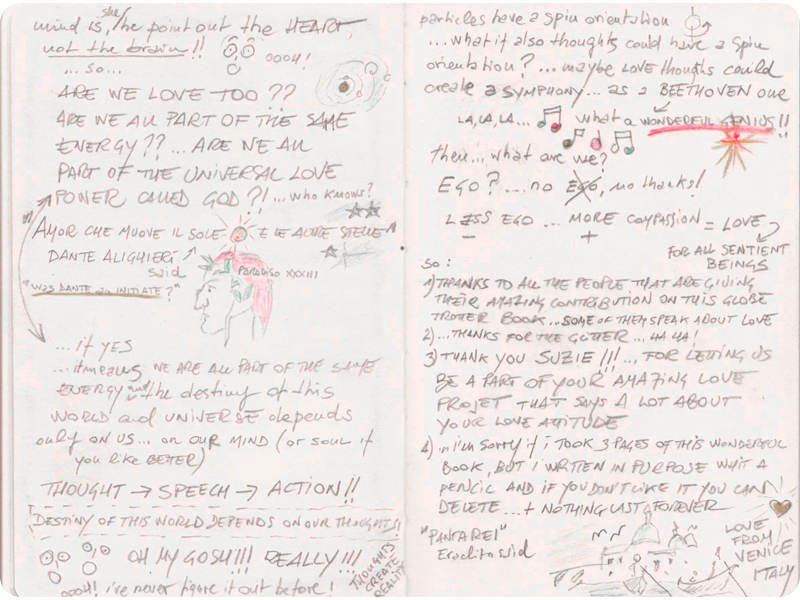 she
mind is, he point out the HEART,
not the brain!!
OOOH!
...SO...
ARE WE LOVE TOO??
ARE WE ALL PART OF THE SAME
ENERGY??...ARE WE ALL
PART OF THE UNIVERSAL LOVE
POWER CALLED GOD?!...WHO KNOWS?
AMOR CHE MUOVE IL SOLE E LE ALTRE STELLE
DANTE ALIGHIERI
said
PARADISO XXXIII
"WAS DANTE an INITIATE?"
...if YES
...it means WE ARE ALL PART OF THE SAME
ENERGY and the destiny of this
WORLD and UNIVERSE depends
only on us... on OUR MIND (or soul if
you like BETTER)
THOUGHT → SPEECH → ACTION!!
DESTINY OF THIS WORLD DEPENDS ON OUR THOUGHTS!
OH MY GOSH!!! REALLY!!!
OOOH! i've never figure it out before!
THOUGHTS
CREATE
REALITY
particles have a spin orientation
...what if also thoughts could have a spin
orientation?...maybe LOVE thoughts could
create a SYMPHONY... as a BEETHOVEN one
LA, LA, LA... what a WONDERFUL GENIUS!!
then...what are we?
EGO?...no EGO, no thanks!
LESS EGO ... MORE COMPASSION = LOVE
- +
FOR ALL SENTIENT
BEINGS
SO:
1) THANKS TO ALL THE PEOPLE THAT ARE GIVING
THEIR AMAZING CONTRIBUTION ON THIS GLOBE
TROTTER BOOK...SOME OF THEM SPEAK ABOUT LOVE
2)...THANKS FOR THE GLITTER... HA HA!
3) THANK YOU SUZIE!!!... FOR LETTING US
BE A PART OF YOUR AMAZING LOVE
PROJET THAT SAYS A LOT ABOUT
YOUR LOVE ATTITUDE
4) i'm sorry if i TOOK 3 PAGES OF THIS WONDERFUL
BOOK, BUT i WRITTEN IN PURPOSE WHIT A
PENCIL AND IF YOU DON'T LIKE IT YOU CAN
DELETE...+ NOTHING LAST FOREVER
"PANTA REI"
Eraclito said
LOVE
FROM
VENICE
ITALY